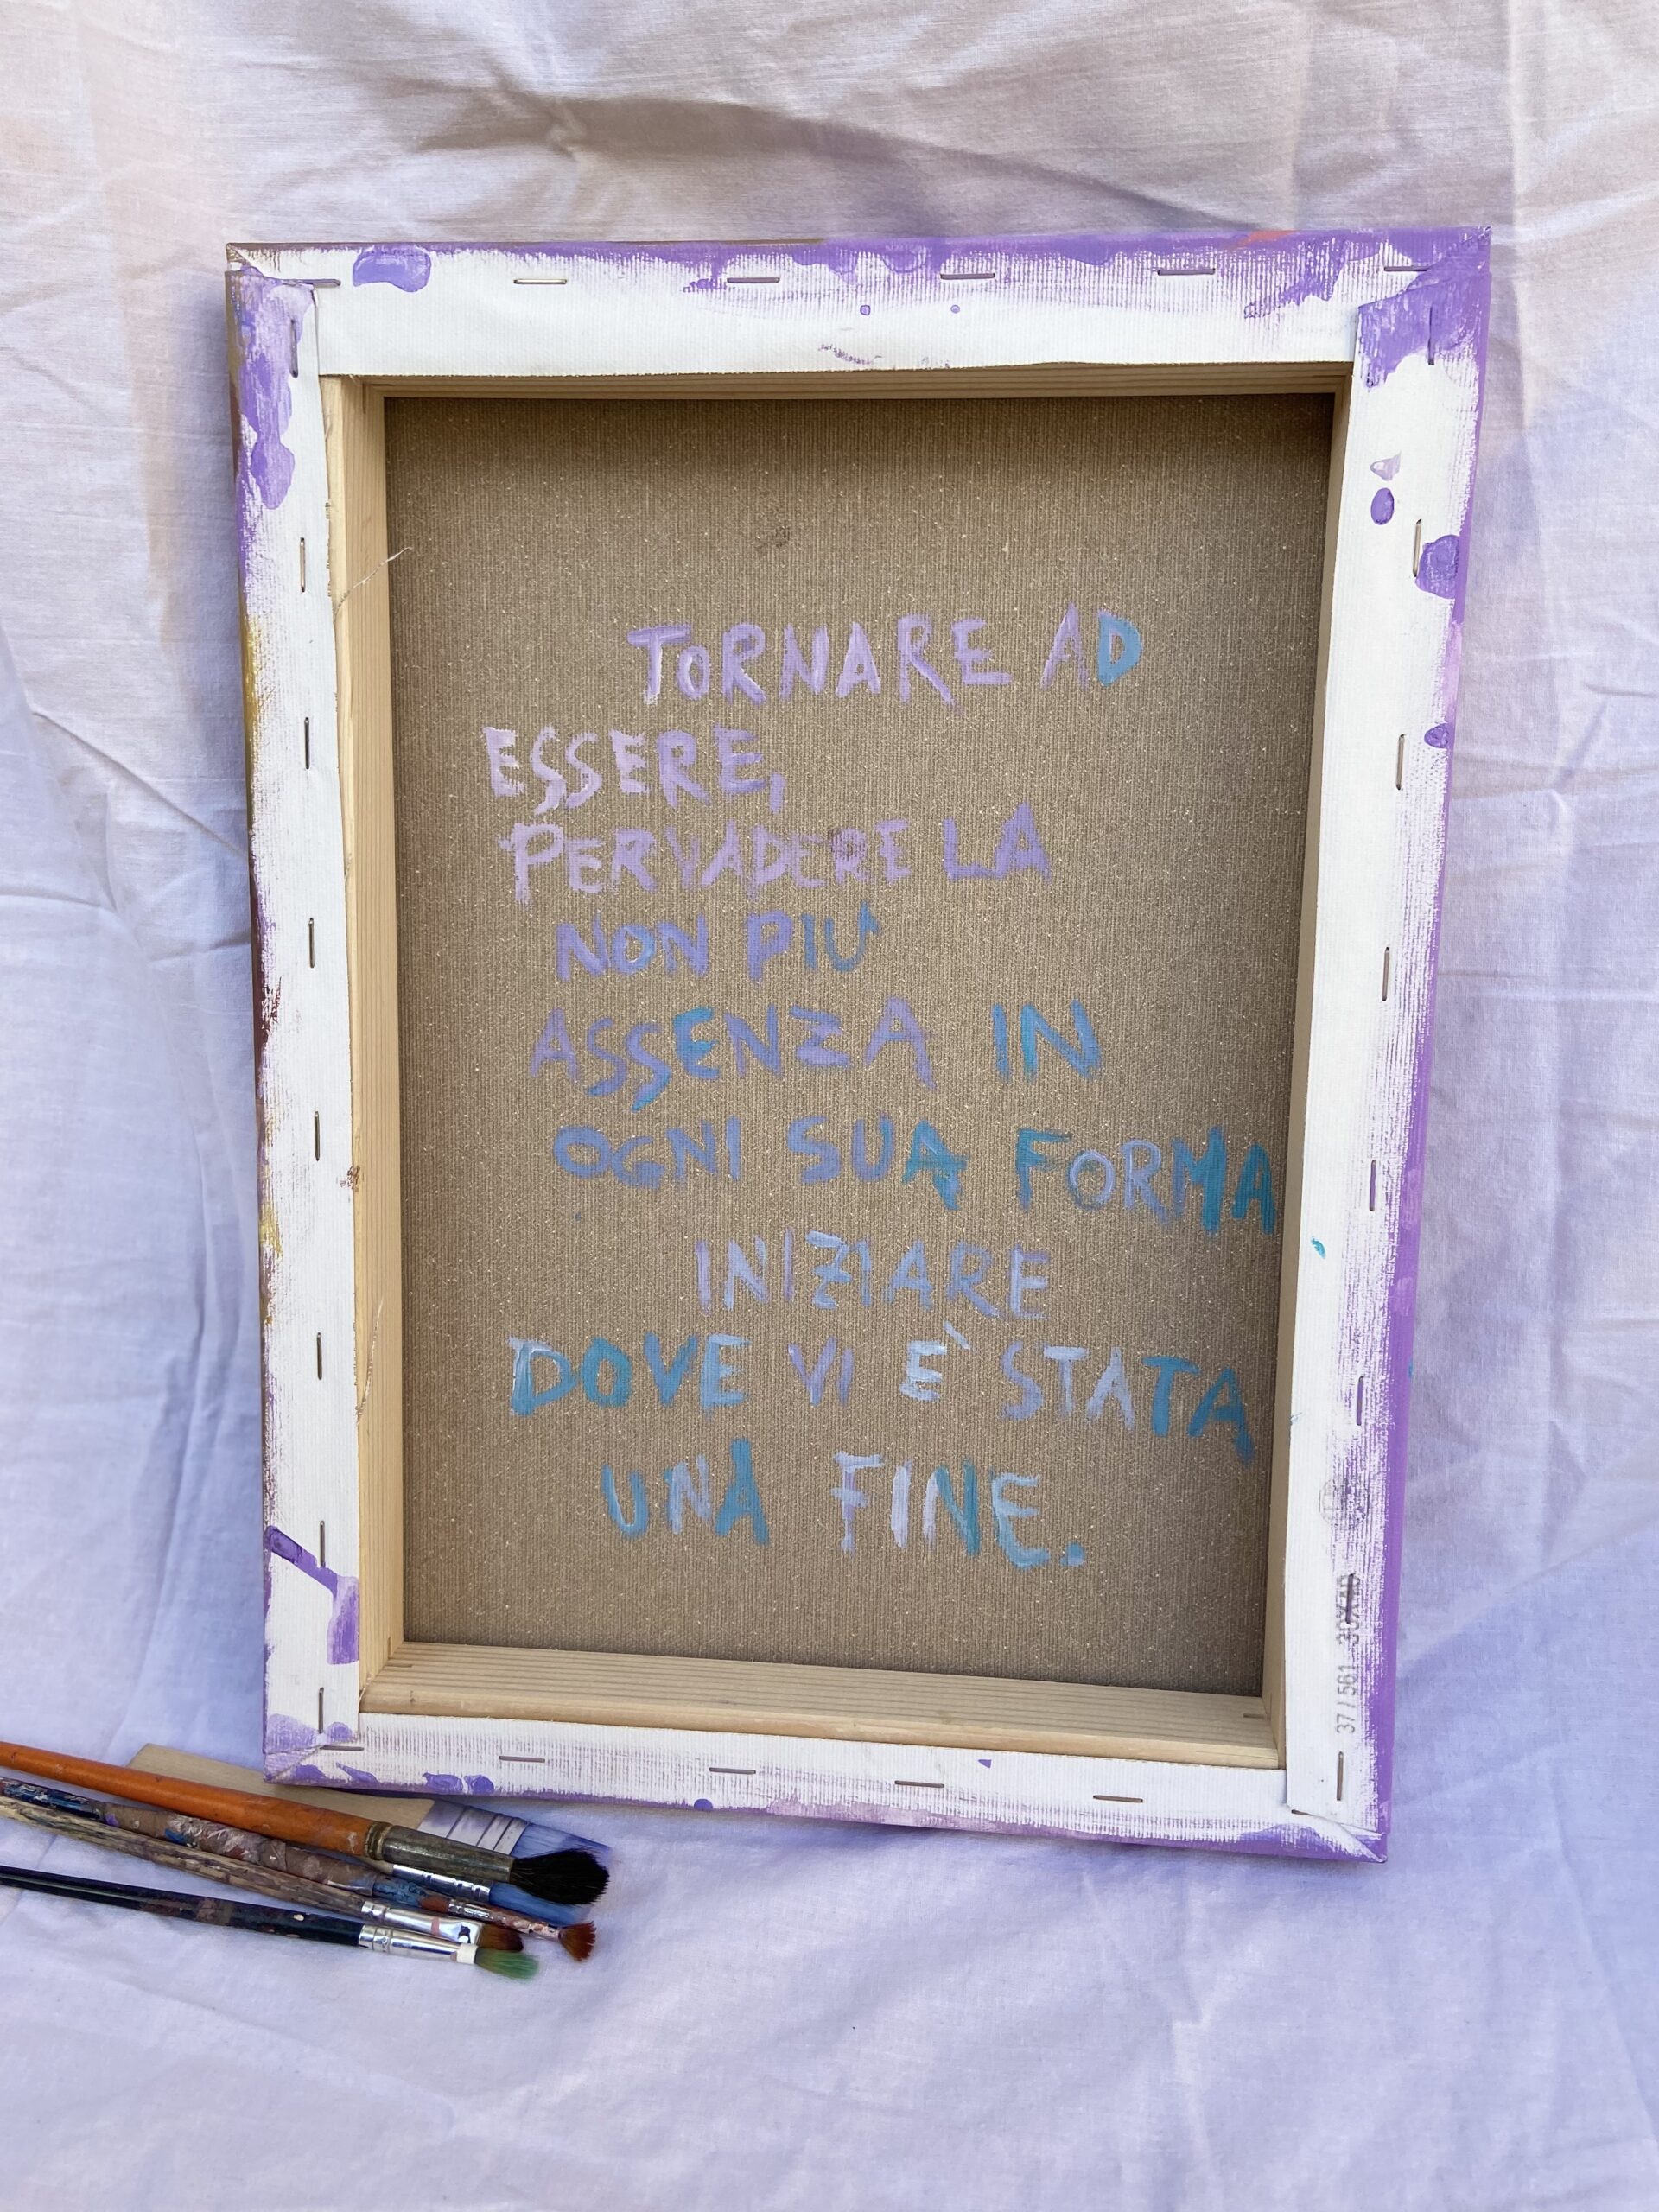 TORNARE AD
ESSERE,
PERVADERE LA
NON PIU'
ASSENZA IN
OGNI SUA FORMA
INIZIARE
DOVE VI E' STATA
UNA FINE.
37 / 561 30X40